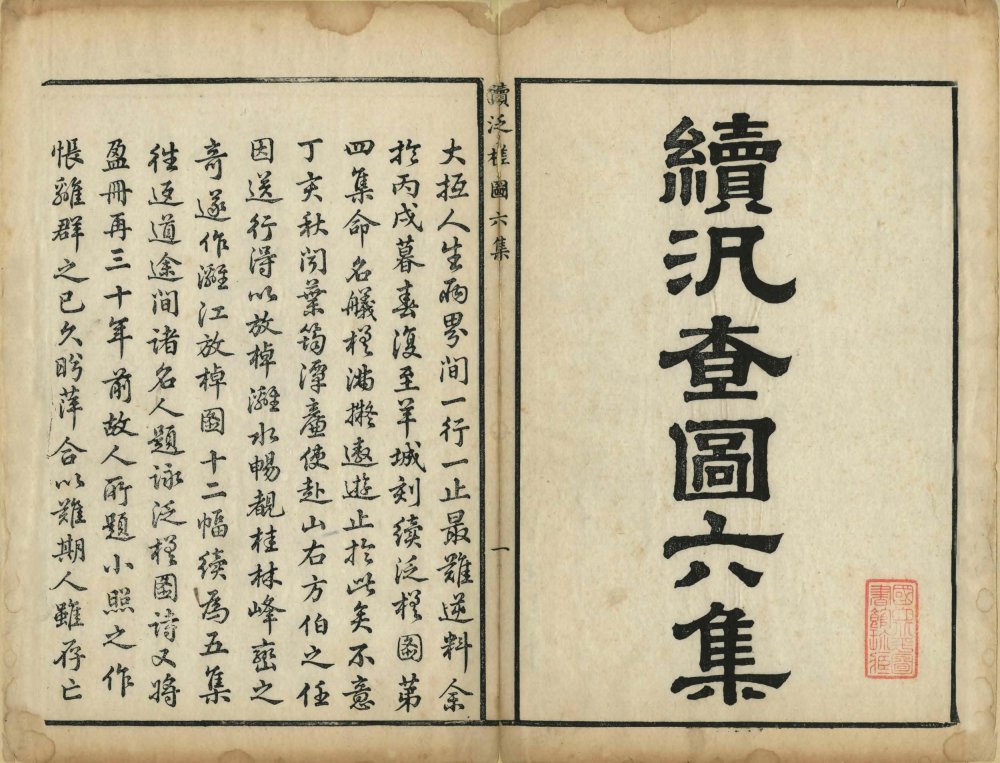 續汎查圖六集
國立北平圖
書館珍藏
續泛槎圖六集
一
大抵人生兩界間一行一止最難逆料余
於丙戌暮春復至羊城刻續泛槎圖第
四集命名艤槎滿擬遨遊止於此矣不意
丁亥秋聞葉筠潭廉使赴山右方伯之任
因送行得以放棹灕水暢觀桂林峰巒之
奇遂作灕江放棹圖十二幅續為五集
往返道途間諸名人題詠泛槎圖詩又將
盈冊再三十年前故人所題小照之作
悵離群之已久盼萍合以難期人雖存亡